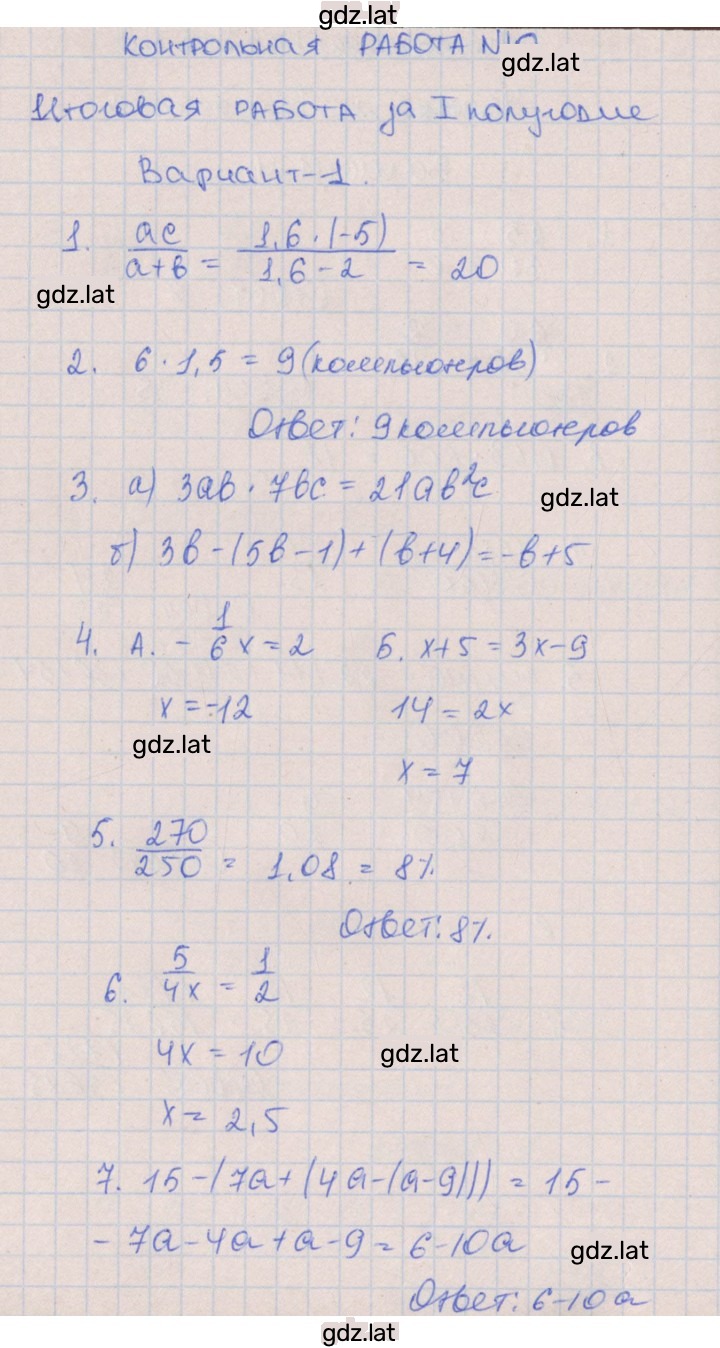 gdz.lat
КОНТРОЛЬНАЯ РАБОТА
gdz.lat
Итоговая РАБОТА за I полугодие
Вариант-1.
1. ac/(a+b) = 1,6·(-5)/(1,6-2) = 20
gdz.lat
2. 6·1,5 = 9 (компьютеров)
Ответ: 9 компьютеров
3. а) 3ab·7bc = 21ab²c
gdz.lat
б) 3b-(5b-1)+(b+4)=-b+5
4. А. -1/6 x = 2 Б. x+5 = 3x-9
x = -12 14 = 2x
gdz.lat
x = 7
5. 270/250 = 1,08 = 8%
Ответ: 8%.
6. 5/4x = 1/2
4x = 10 gdz.lat
x = 2,5
7. 15-(7a+(4a-(a-9))) = 15-
-7a-4a+a-9 = 6-10a
gdz.lat
Ответ: 6-10a
gdz.lat